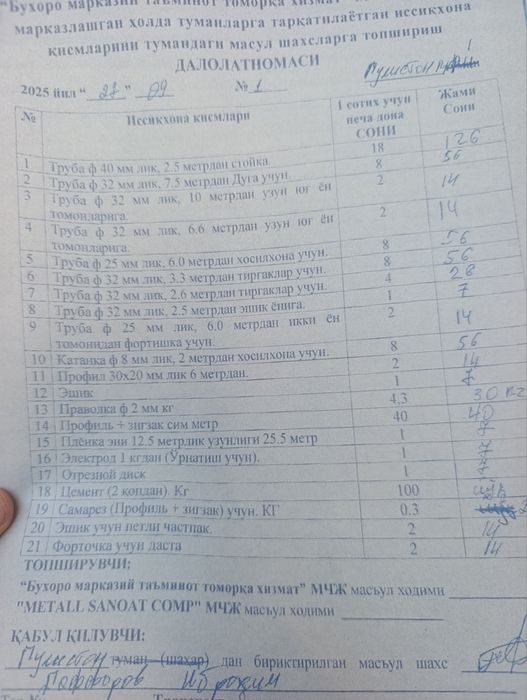 “Бухоро марказий таъминот томорқа хизмат”
марказлашган ҳолда туманларга тарқатилаётган иссиқхона
қисмларини тумандаги масъул шахсларга топшириш
ДАЛОЛАТНОМАСИ
2025 йил “ 27 ” 09 № 1 Гулистон
№ Иссиқхона қисмлари 1 сотих учун неча дона СОНИ Жами Сони
1 Труба ф 40 мм лик, 2.5 метрдан стойка. 18 126
2 Труба ф 32 мм лик, 7.5 метрдан Дуга учун. 8 56
3 Труба ф 32 мм лик, 10 метрдан узун юғ ён томонларига. 2 14
4 Труба ф 32 мм лик, 6,6 метрдан узун юғ ён томонларига. 2 14
5 Труба ф 25 мм лик, 6.0 метрдан хосилхона учун. 8 56
6 Труба ф 32 мм лик, 3.3 метрдан тиргаклар учун. 8 56
7 Труба ф 32 мм лик, 2.6 метрдан тиргаклар учун. 4 28
8 Труба ф 32 мм лик, 2.5 метрдан эшик ёнига. 1 7
9 Труба ф 25 мм лик, 6.0 метрдан икки ён томонидан фортишка учун. 2 14
10 Катанка ф 8 мм лик, 2 метрдан хосилхона учун. 8 56
11 Профил 30х20 мм лик 6 метрдан. 2 14
12 Эшик 1 7
13 Праволка ф 2 мм кг 4,3 30 кг
14 Профиль + зигзак сим метр 40 40
15 Плёнка эни 12.5 метрлик узунлиги 25.5 метр 1 7
16 Электрод 1 кгдан (Ўрнатиш учун). 1 7
17 Отрезной диск 1 7
18 Цемент (2 қопдан). Кг 100
19 Самарез (Профиль + зигзак) учун. КГ 0.3
20 Эшик учун петли частпак. 2 14
21 Форточка учун даста 2 14
ТОПШИРУВЧИ:
“Бухоро марказий таъминот томорқа хизмат” МЧЖ масъул ходими
"METALL SANOAT COMP" МЧЖ масъул ходими
ҚАБУЛ ҚИЛУВЧИ:
Гулистон туман (шаҳар) дан бириктирилган масъул шахс